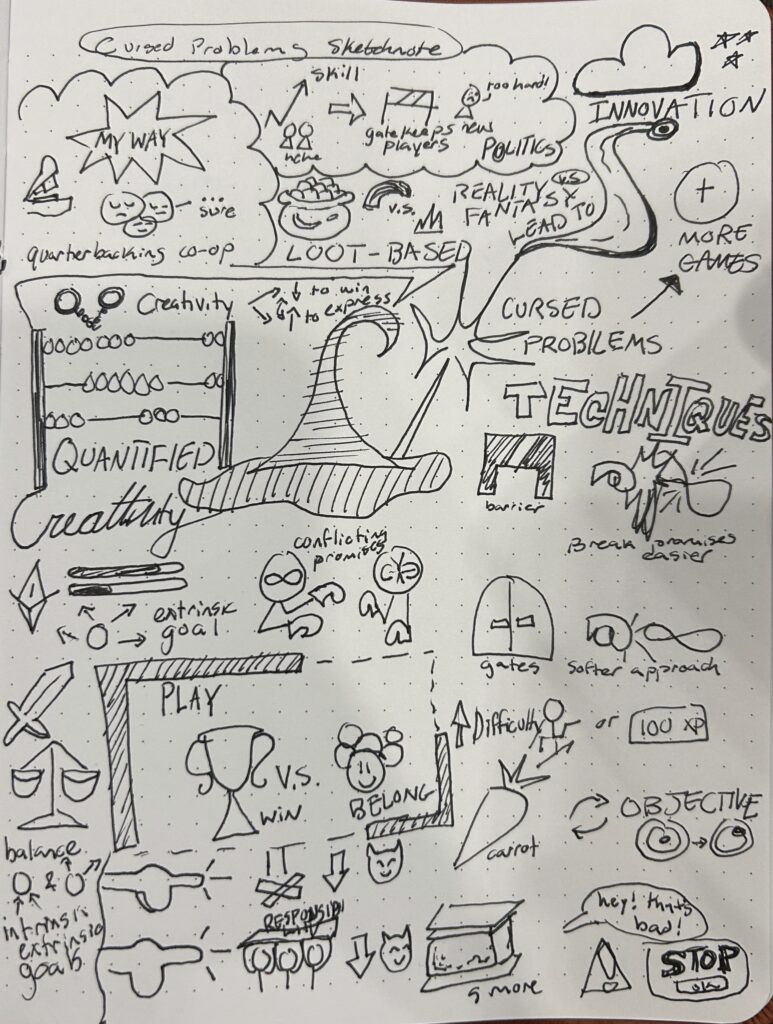 Cursed Problems Sketchnote
skill
too hard!
gatekeeps new
players
POLITICS
MY WAY
... sure
quarterbacking co-op
v.s.
LOOT-BASED
REALITY v.s.
FANTASY
LEAD TO
INNOVATION
+
MORE
GAMES
CURSED
PROBLEMS
Creativity
to win
to express
QUANTIFIED
Creativity
TECHNIQUES
barrier
Break promises
easier
conflicting
promises
extrinsic
goal
gates
Softer approach
PLAY
V.S.
WIN
BELONG
Difficulty
or
100 XP
carrot
OBJECTIVE
balance
&
intrinsic
extrinsic
goals
IT
RESPONSIBI
s more
hey! that's
bad!
STOP
ok